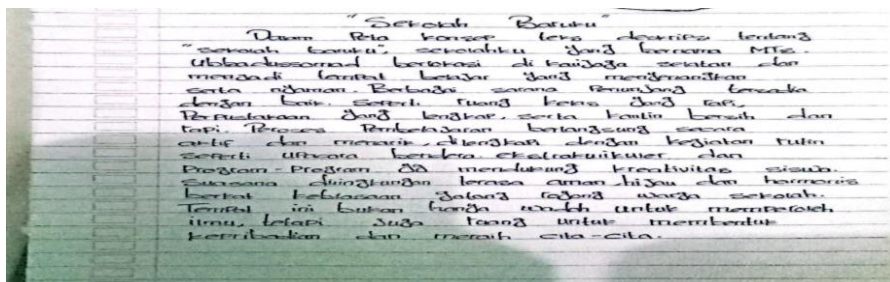 "Sekolah Baruku"
Dalam Peta konsep teks deskripsi tentang
"sekolah baruku", sekolahku yang bernama MTs.
Ubbadussomad berlokasi di kalijaga selatan dan
menjadi tempat belajar yang menyenangkan
serta nyaman. Berbagai sarana Penunjang tersedia
dengan baik. Seperti ruang kelas yang rapi,
Perpustakaan yang lengkap, serta kantin bersih dan
rapi. Peroses Pembelajaran berlangsung secara
aktif dan menarik, dilengkapi dengan kegiatan rutin
seperti upacara bendera. ekstrakulikuler dan
Program-Program yg mendukung kreativitas siswa.
Suasana dilingkungan terasa aman, hijau dan harmonis
berkat kebiasaan gotong royong warga sekolah.
Tempat ini bukan hanya wadah untuk memperoleh
ilmu, tetapi juga ruang untuk membentuk
kepribadian dan meraih cita-cita.